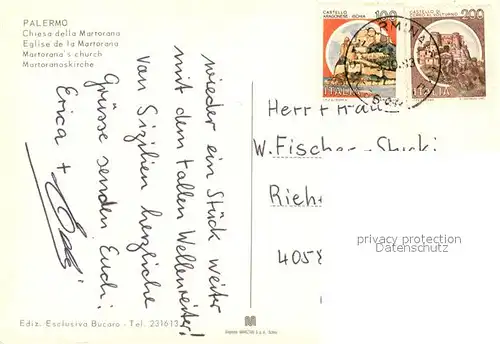 PALERMO
Chiesa della Martorana
Eglise de la Martorana
Martorana's church
Martoranaskirche
wieder ein Stück weiter
mit dem tollen Wellenreiter!
Von Sizilien herzliche
Grüsse senden Euch:
Erica +
CASTELLO
ARAGONESE - ISCHIA
100
ITALIA
CASTELLO DI
200
ITALIA
Herr + Frau
W. Fischer-
Rieh
4058
privacy protection
www.ansichtskartenversand.com
Ediz. Esclusiva Bucaro - Tel. 231613